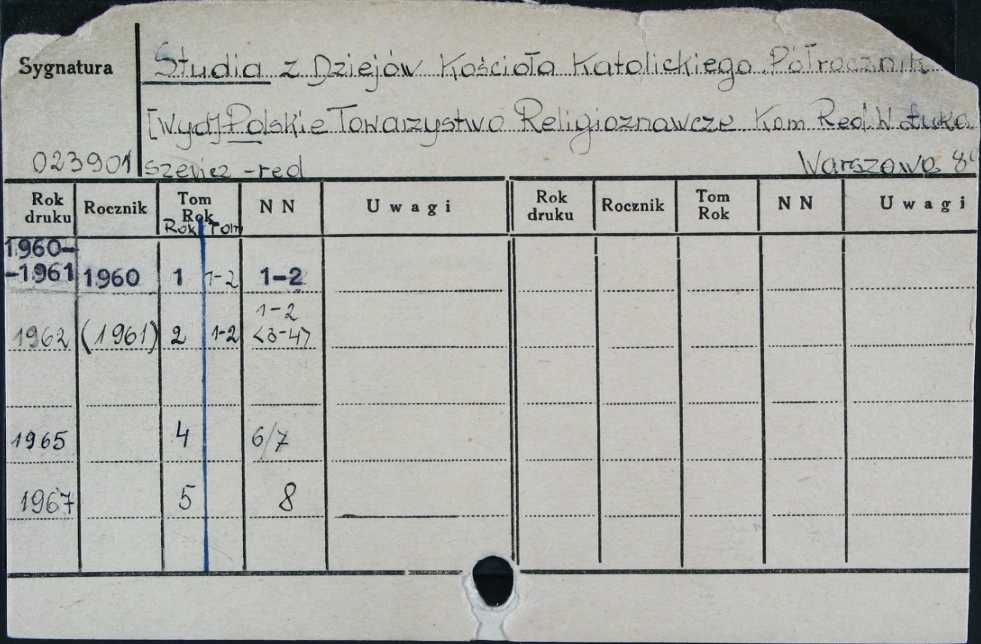 Sygnatura
Studia z Dziejów Kościoła Katolickiego. Półrocznik
[Wyd] Polskie Towarzystwo Religioznawcze Kom Red. W. Łuka
023901 szewicz - red Warszawa 8º
Rok druku Rocznik Tom Rok NN Uwagi Rok druku Rocznik Tom Rok NN Uwagi
Rok Tom
1960-
-1961 1960 1 1-2 1-2
1-2
1962 (1961) 2 1-2 <3-4>
1965 4 6/7
1967 5 8